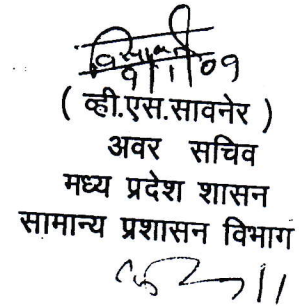 9/1/09
( व्ही.एस.सावनेर )
अवर सचिव
मध्य प्रदेश शासन
सामान्य प्रशासन विभाग